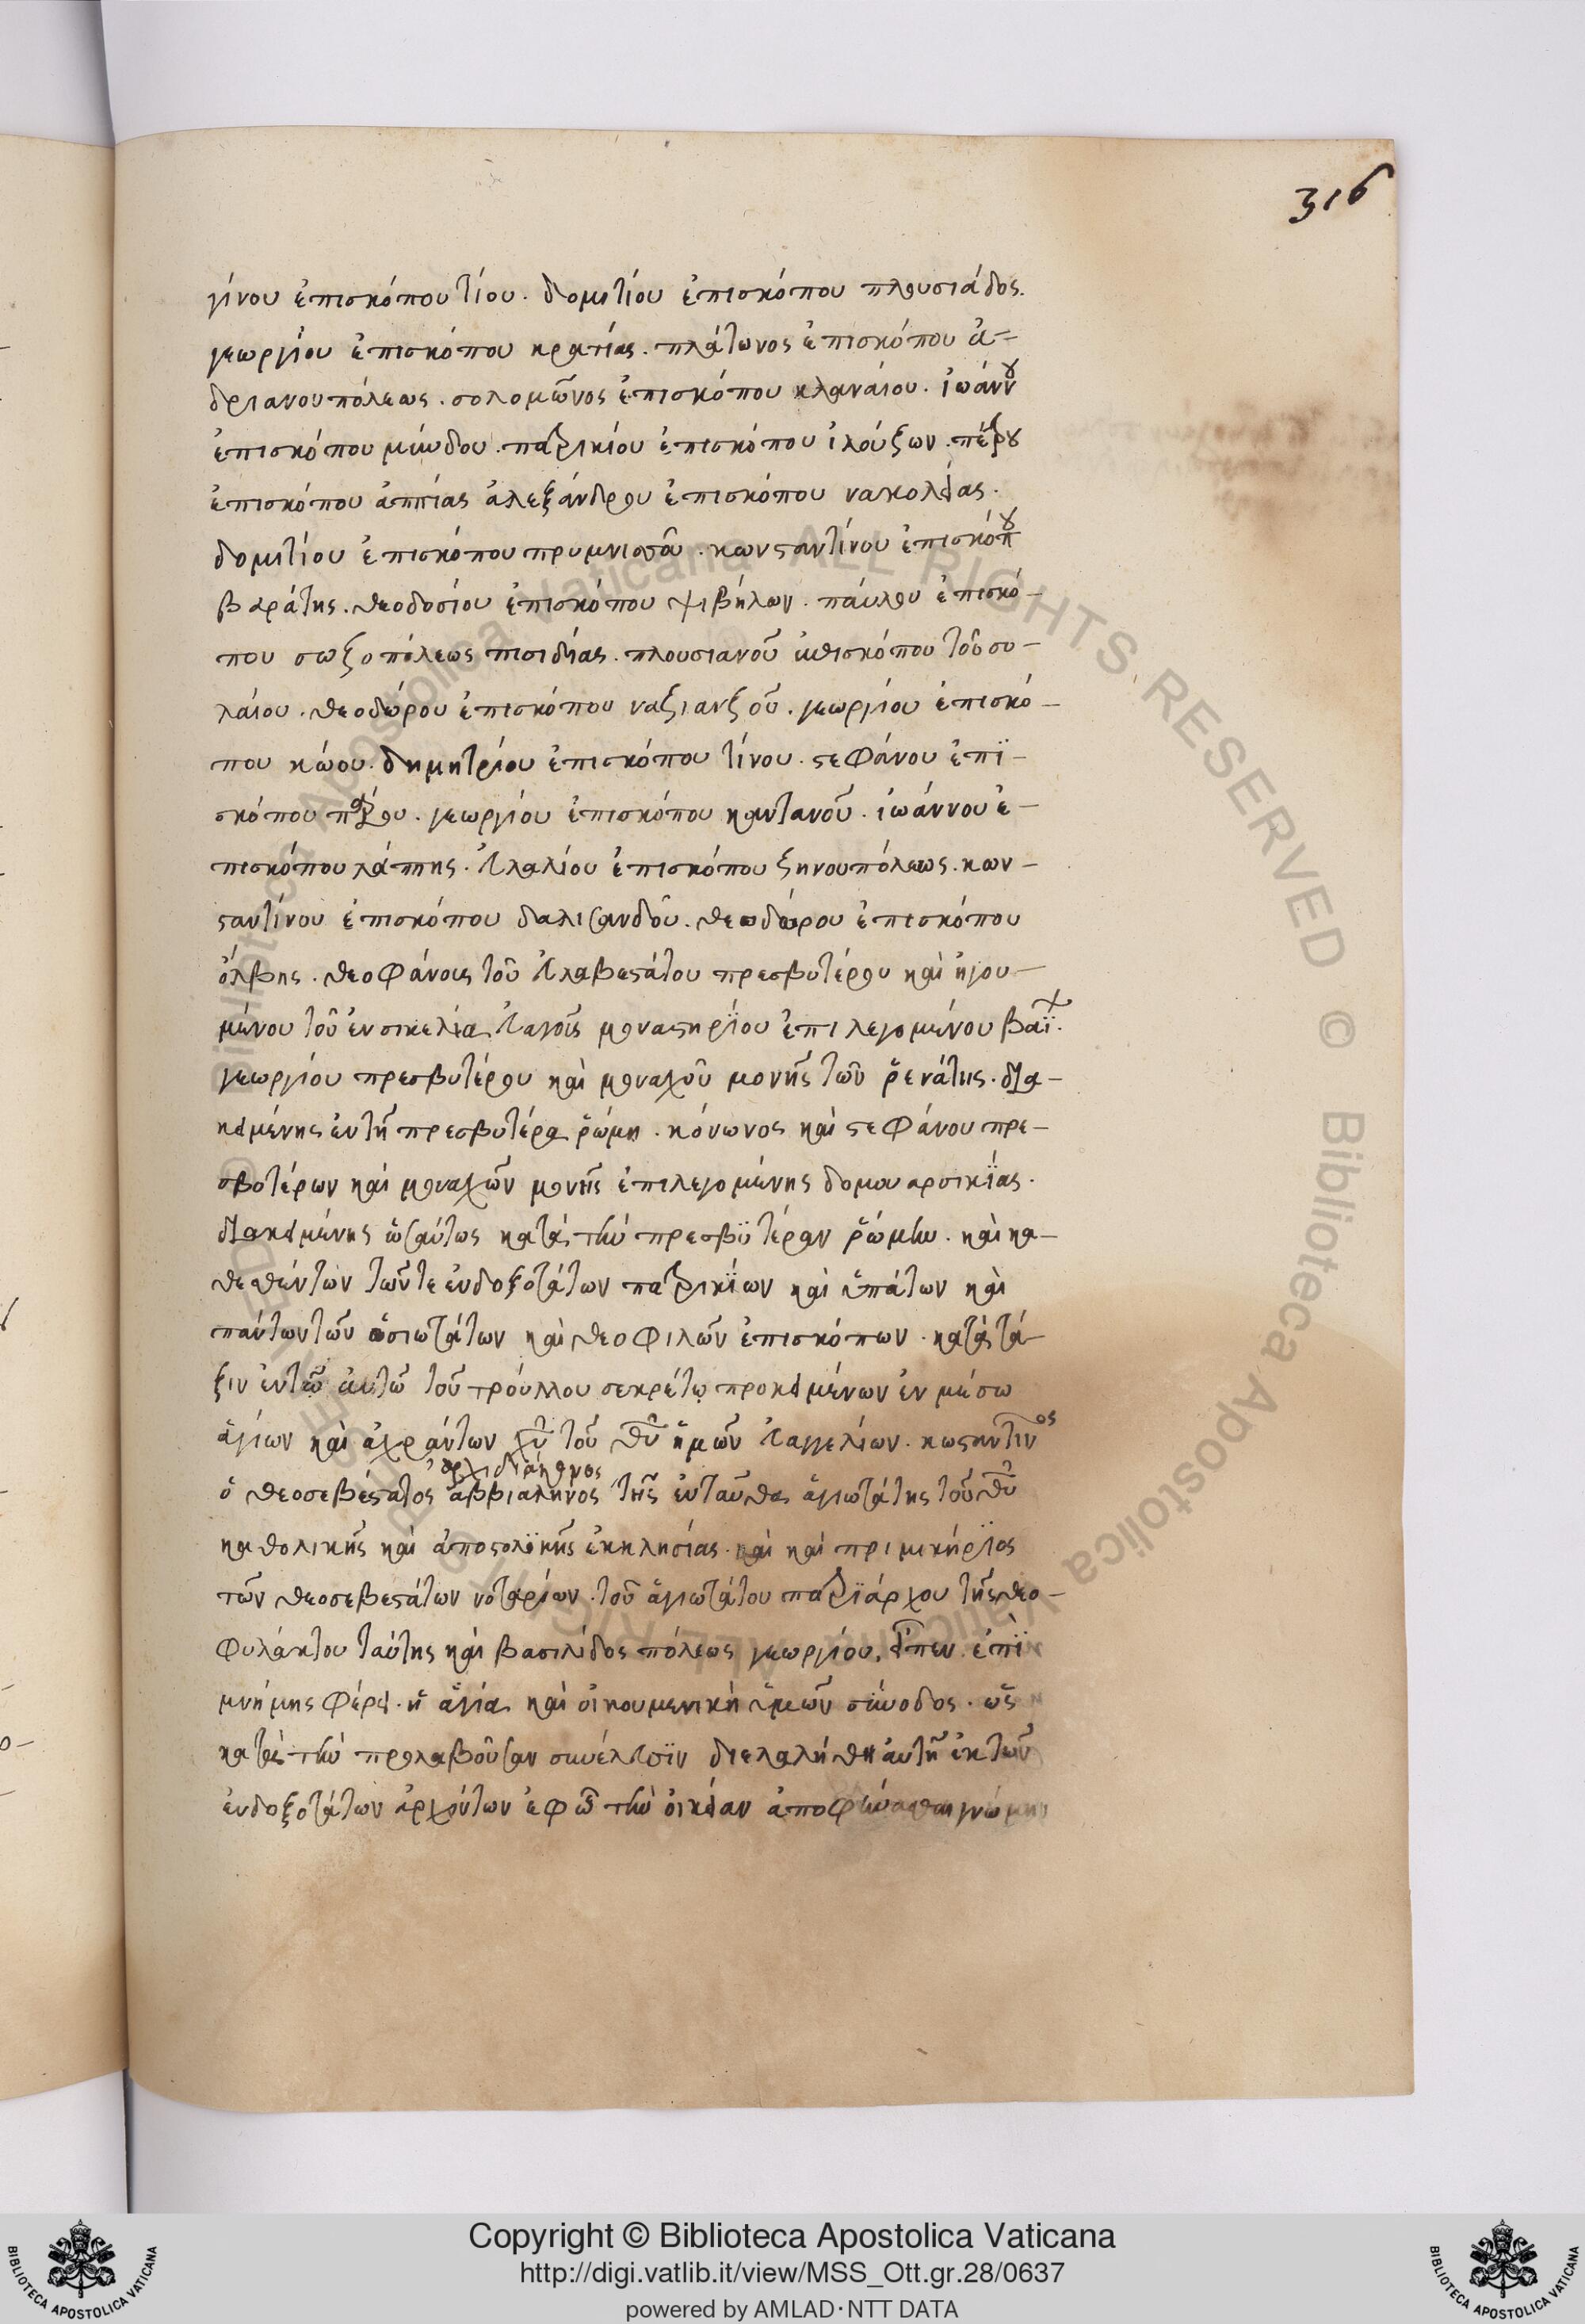 316
γίνου ἐπισκόπου τίου. δομιτίου ἐπισκόπου πλουσιάδος.
γεωργίου ἐπισκόπου κρατίας. πλάτωνος ἐπισκόπου ἀ-
δριανουπόλεως. σολομῶνος ἐπισκόπου κλαναίου. ἰωάννου
ἐπισκόπου μίνδου. πατρικίου ἐπισκόπου ἰλούζων. πέτρου
ἐπισκόπου ἀππίας ἀλεξάνδρου ἐπισκόπου νακολείας.
δομιτίου ἐπισκόπου πρυμνισοῦ. κωνσταντίνου ἐπισκόπου
βαράτης. θεοδοσίου ἐπισκόπου ψιβήλων. πάυλου ἐπισκό-
που σωζοπόλεως πισιδίας. πλουσιανοῦ ἐπισκόπου τοῦ συ-
λάιου. θεοδώρου ἐπισκόπου ναζιανζοῦ. γεωργίου ἐπισκό-
που κώου. δημητρίου ἐπισκόπου τίνου. στεφάνου ἐπϊ-
σκόπου πάρου. γεωργίου ἐπισκόπου κανταννοῦ. ἰωάννου ἐ-
πισκόπου λάππης. εὐλαλίου ἐπισκόπου ζηνουπόλεως. κων-
σταντίνου ἐπισκόπου δαλισανδοῦ. θεοδώρου ἐπισκόπου
ὄλβης. θεοφάνους τοῦ εὐλαβεστάτου πρεσβυτέρου καὶ ἡγου-
μένου τοῦ ἐν σικελία εὐαγοῦς μοναστηρΐου ἐπιλεγομένου βαϊ.
γεωργίου πρεσβυτέρου καὶ μοναχοῦ μονῆς τῶν ῥενάτης. δια-
κειμένης ἐν τῆ πρεσβυτέρα ῥώμη. κόνωνος καὶ στεφάνου πρε-
σβυτέρων καὶ μοναχῶν μονῆς ἐπιλεγομένης δομου αρσικΐας.
διακειμένης ὡσαύτως κατὰ τὴν πρεσβϋτέραν ῥώμην. καὶ κα-
θεθέντων τῶν τε ἐνδοξοτάτων πατρικΐων καὶ ὑπάτων καὶ
πάντων τῶν ὁσιωτάτων καὶ θεοφιλῶν ἐπισκόπων. κατὰ τά-
ξιν ἐν τῶ ἀυτῶ τοῦ τρούλλου σεκρέτω προκειμένων ἐν μέσω
ἁγίων καὶ ἀχράντων χυ τοῦ θυ ἡμῶν εὐαγγελίων. κωσταντῖνος
ἀρχιδιάκονος
ὁ θεοσεβέστατος ἀββιαληνος τῆς ἐνταῦθα ἁγιωτάτης τοῦ θυ
καθολικῆς καὶ ἀποστολϊκῆς ἐκκλησίας. καὶ καὶ πριμικήρΐος
τῶν θεοσεβεστάτων νοταρίων. τοῦ ἁγιωτάτου πατρϊάρχου τῆς θεο-
φυλάκτου ταύτης καὶ βασιλίδος πόλεως γεωργίου, εἶπεν. ἐπϊ
μνήμης φέρει. ἡ ἁγία καὶ οἰκουμενικὴ ὑμῶν σύνοδος. ὡς
κατὰ τὴν προλαβοῦσαν συνέλευσϊν διελαλήθη ἀυτῆ ἐκ τῶν
ἐνδοξοτάτων ἀρχόντων ἐφ ὧ τὴν ὀικείαν ἀποφήνασθαι γνώμην